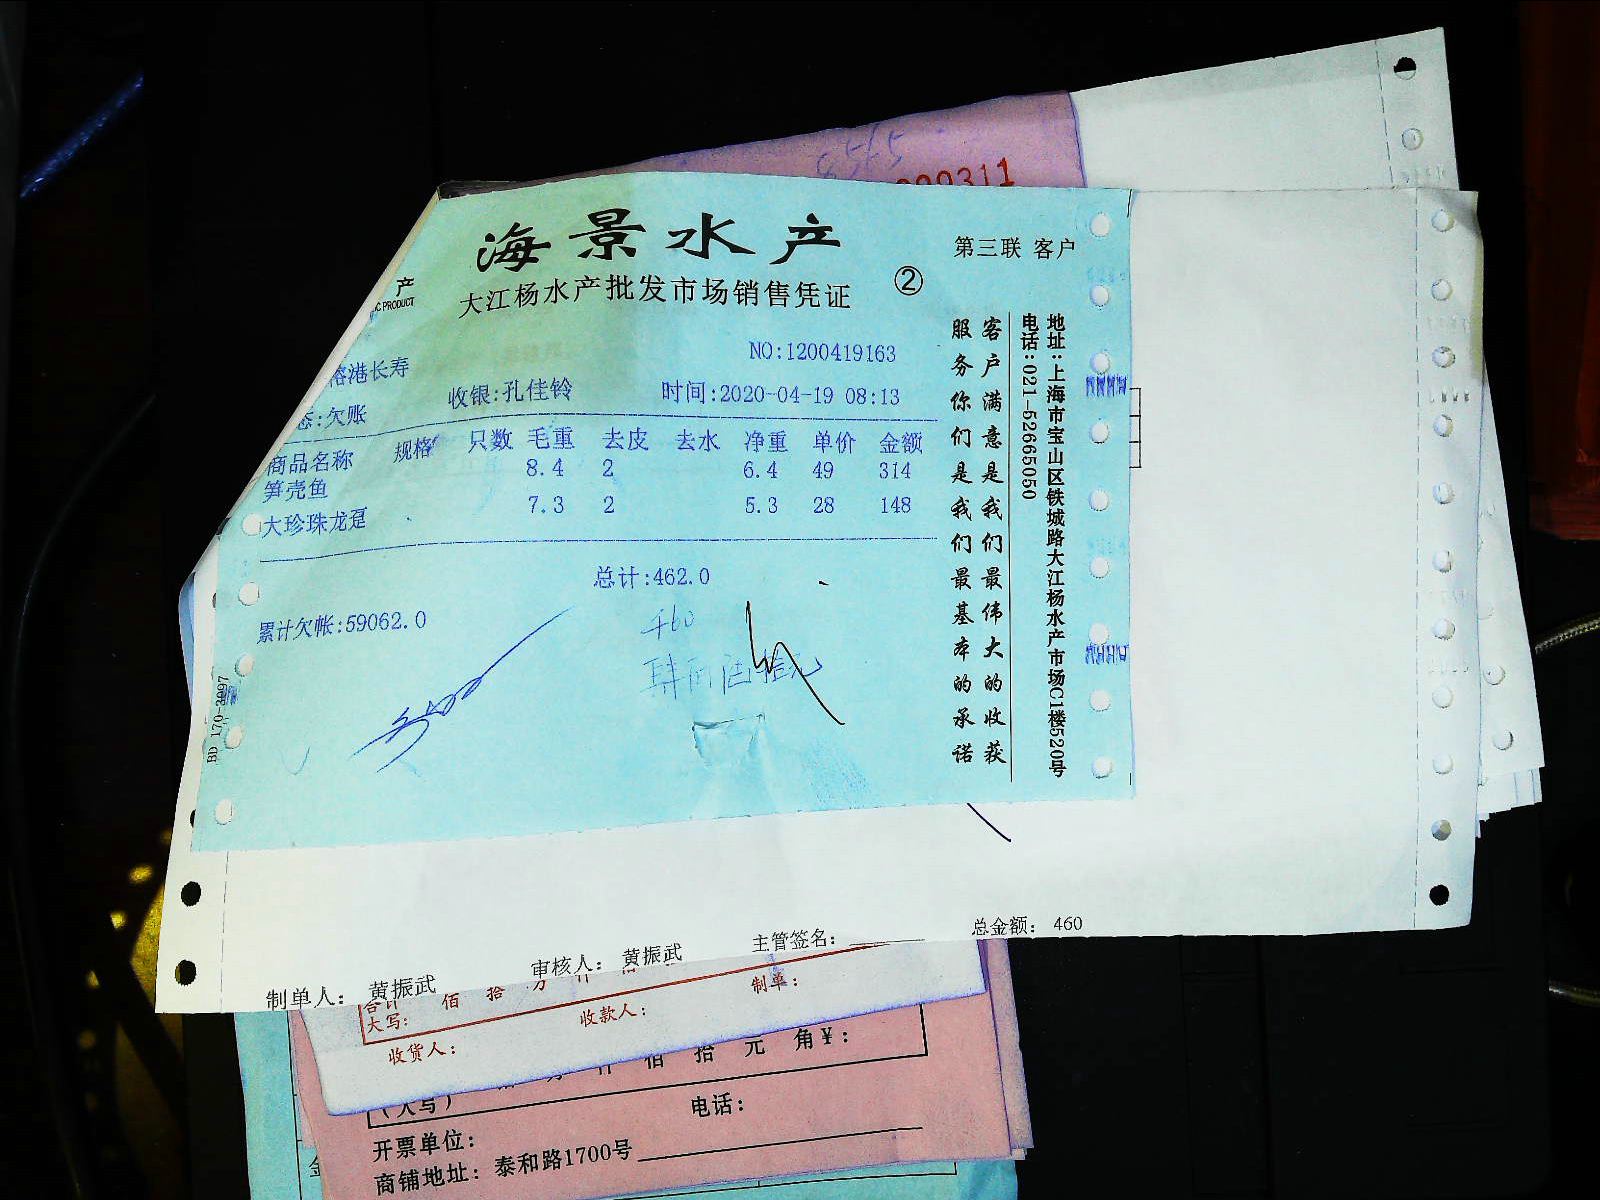 000311
海景水产
第三联 客户
产
C PRODUCT
大江杨水产批发市场销售凭证
②
NO:1200419163
港长寿
态:欠账
收银:孔佳铃
时间:2020-04-19 08:13
商品名称 规格 只数 毛重 去皮 去水 净重 单价 金额
笋壳鱼 8.4 2 6.4 49 314
大珍珠龙趸 7.3 2 5.3 28 148
总计:462.0
累计欠帐:59062.0
460
肆佰陆拾元
BD 170-3997
客户满意是我们最伟大的收获
服务你们是我们最基本的承诺
地址:上海市宝山区铁城路大江杨水产市场C1楼520号
电话:021-52665050
总金额: 460
主管签名:
审核人: 黄振武
制单人: 黄振武
合计
大写:
佰 拾 万 仟 佰
制单:
收款人:
收货人:
万 仟 佰 拾 元 角¥:
(大写)
电话:
开票单位:
商铺地址: 泰和路1700号
金